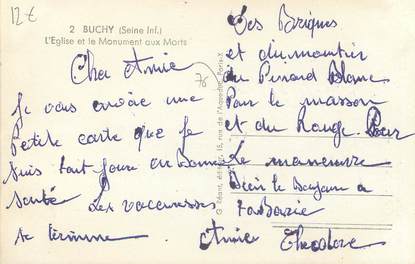 12€
2 BUCHY (Seine Inf.)
L'Eglise et le Monument aux Morts
Cher Amie
Je vous envoie une
Petite carte que je
suis tout jours en Bonne
santé Les vacansses
se termine
76
G. Réant, édit., 15, rue de l'Aqueduc, Paris-X
Des Briques
et du mortier
du Pinard Blanc
Pour le masson
et du Rouge Pour
Le manœuvre
Bien le Bonjour a
Amie Theodore